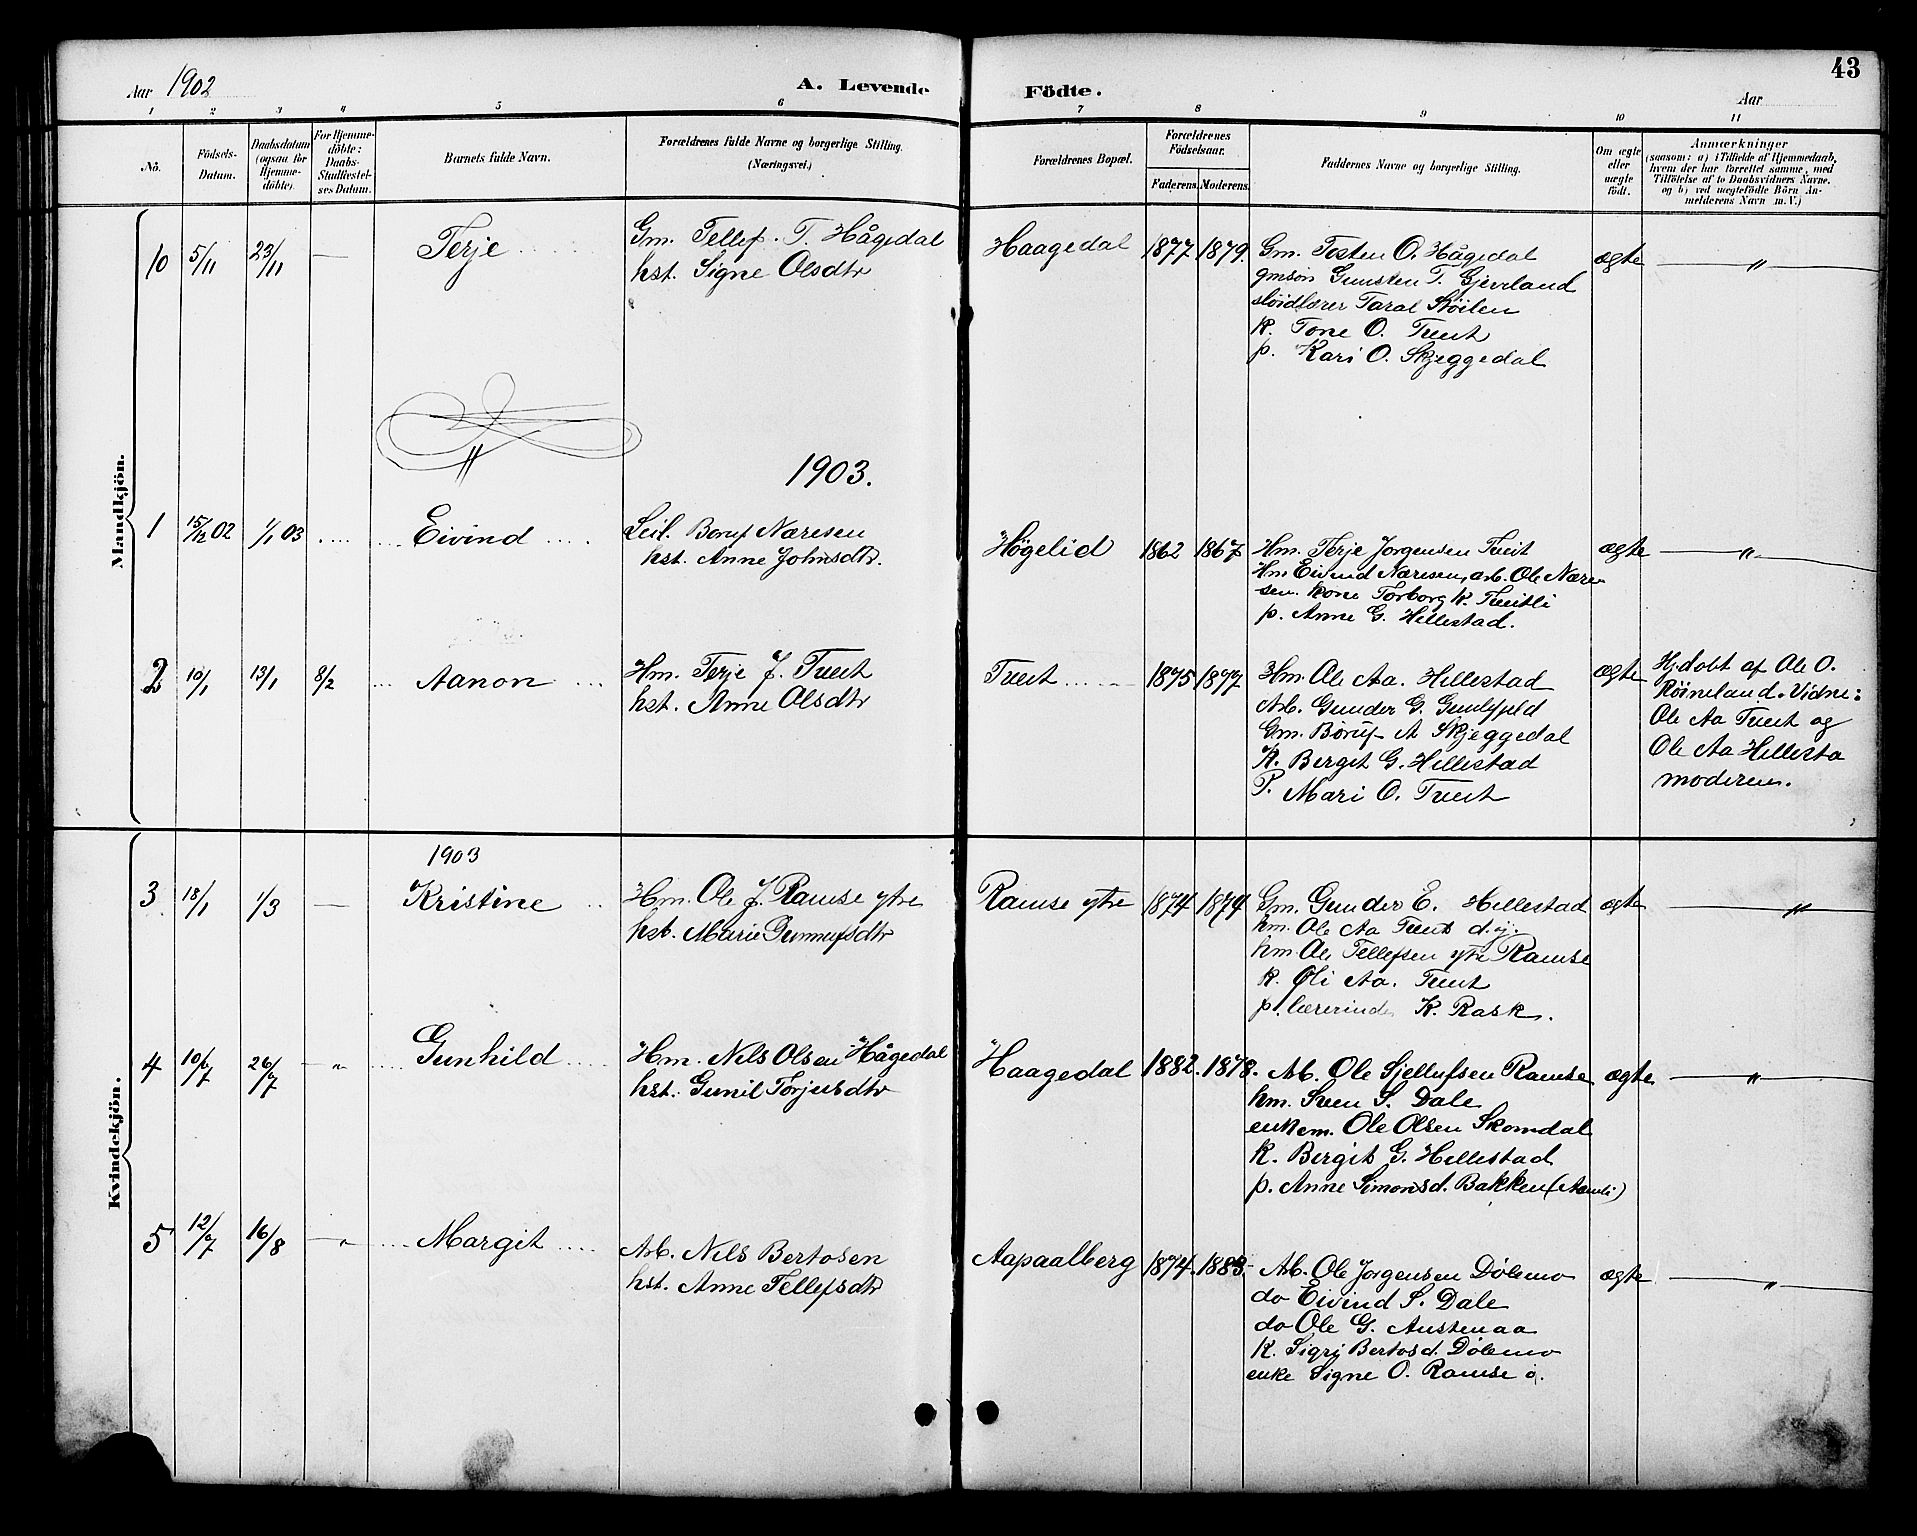 43
Aar 1902
A. Levende Födte.
Aar
1 2 3 4 5 6 7 8 9 10 11
No.
Födsels-
Datum.
Daabsdatum
(ogsaa for
Hjemme-
döbte).
For Hjemme-
döbte:
Daabs-
Stadfæstel-
ses Datum.
Barnets fulde Navn.
Forældrenes fulde Navne og borgerlige Stilling.
(Næringsvei.)
Forældrenes Bopæl.
Forældrenes
Födselsaar.
Faderens. Moderens.
Faddernes Navne og borgerlige Stilling.
Om ægte
eller
uægte
födt.
Anmærkninger
(saasom: a) i Tilfælde af Hjemmedaab,
hvem der har forrettet samme, med
Tilföielse af to Daabsvidners Navne.
og b) ved uægtefödte Börn An-
melderens Navn m. V.)
Mandkjön.
10 5/11 23/11 — Terje
Gm. Tellef. T. Hågedal
hst. Signe Olsdtr
Haagedal 1877 1879.
Gm. Tosten O. Hågedal
gmsøn Gunsten T. Gjeveland
sløidlærer Taral Støilen
k. Tone O. Tveit
p. Kari O. Skjeggedal
ægte — " —
1903.
1 15/12 02 1/1 03 Eivind
Leil. Boruf Næresen
hst. Anne Johnsdtr.
Högelid 1862 1867
Hm. Terje Jorgensen Tveit
Hm Eivind Næresen, arb. Ole Nære-
sen. kone Torborg K. Tveitli
p. Anne G. Hillestad.
ægte — " —
2 10/1 13/1 8/2 Aanon
Hm. Terje J. Tveit
hst. Anne Olsdtr
Tveit 1875 1877
Hm. Ole Aa. Hillestad
Arb. Gunder G.
Gm. Børuf A Skjeggedal
K. Bergit G. Hillestad
P. Mari O. Tveit
ægte
Hj.døbt af Ole O.
Røineland. Vidne:
Ole Aa Tveit og
Ole Aa Hillesta
moderen.
Kvindekjön.
1903
3 18/1 1/3 — Kristine
Hm. Ole J. Ramse ytre
hst. Marie Gunnufsdtr
Ramse ytre 1874 1874
Gm. Gunder E. Hillestad
hm. Ole Aa Tveit d.y.
hm Ole Tellefsen ytre Ramse
k. Oli Aa. Tveit
p. lærerinde K. Rask.
ægte — " —
4 10/7 26/7 — " Gunhild
Hm. Nils Olsen Hågedal
hst. Gunil Torjusdtr
Haagedal 1882. 1878.
Arb. Ole Sjellufsen Ramse
hm. Sven S. Dale
enkem. Ole Olsen Skomdal
k. Bergit G. Hillestad
p. Anne Simonsd. Bakken (Aamli)
ægte — " —
5 12/7 16/8 — " Margit
Arb. Nils Bertosen
hst. Anne Tellefsdtr
Aapaalberg 1874. 1883.
Arb. Ole Jorgensen Dølemo
do Eivind S. Dale
do Ole G. Austenaa
k. Sigri Bertosd. Dølemo
enke Signe O. Ramse i.
ægte — " —